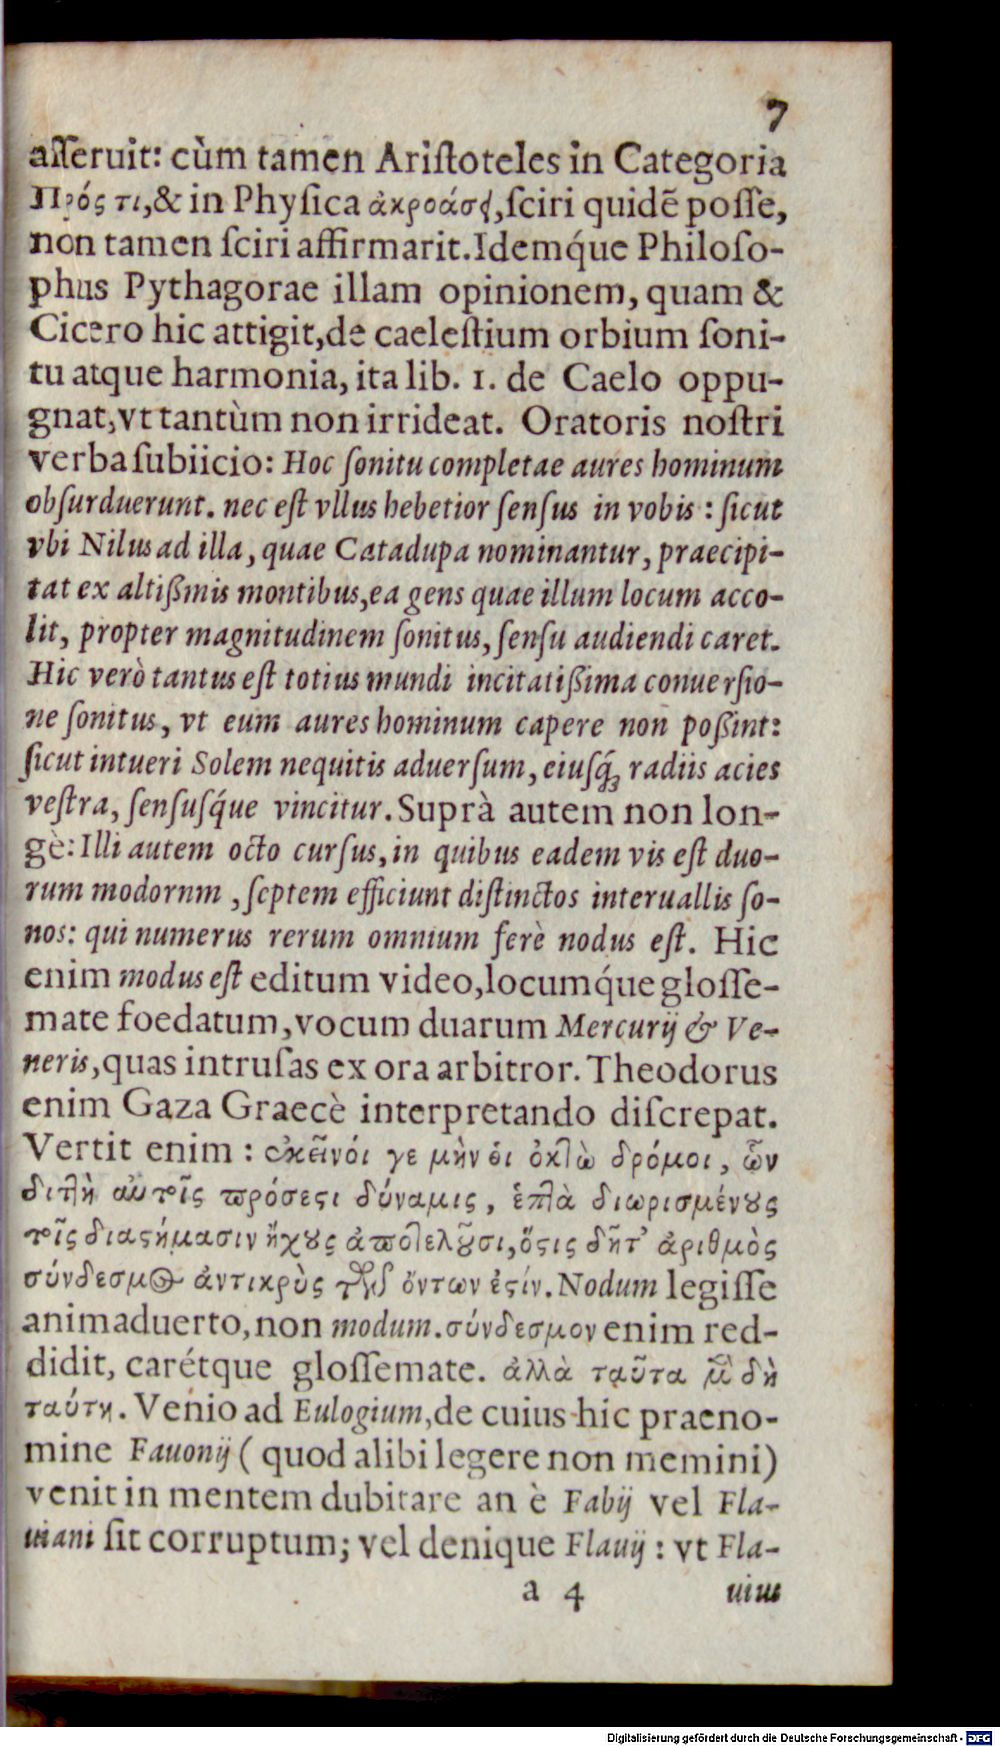 7
aſſeruit: cùm tamen Ariſtoteles in Categoria
Πρός τι,& in Phyſica ἀκροάσει,ſciri quidẽ poſſe,
non tamen ſciri affirmarit.Idemq́ue Philoſo-
phus Pythagorae illam opinionem, quam &
Cicero hic attigit,de caeleſtium orbium ſoni-
tu atque harmonia, ita lib. 1. de Caelo oppu-
gnat,vt tantùm non irrideat. Oratoris noſtri
verba ſubiicio: Hoc ſonitu completae aures hominum
obſurduerunt. nec eſt vllus hebetior ſenſus in vobis : ſicut
vbi Nilus ad illa, quae Catadupa nominantur, praecipi-
tat ex altißmis montibus,ea gens quae illum locum acco-
lit, propter magnitudinem ſonitus, ſenſu audiendi caret.
Hic verò tantus eſt totius mundi incitatißima conuerſio-
ne ſonitus, vt eum aures hominum capere non poßint:
ſicut intueri Solem nequitis aduerſum, eiuſq́ꝫ radiis acies
veſtra, ſenſuſq́ue vincitur. Suprà autem non lon-
gè: Illi autem octo curſus,in quibus eadem vis eſt duo-
rum modornm , ſeptem efficiunt diſtinctos interuallis ſo-
nos: qui numerus rerum omnium ferè nodus eſt. Hic
enim modus eſt editum video,locumq́ue gloſſe-
mate foedatum,vocum duarum Mercurij & Ve-
neris,quas intruſas ex ora arbitror. Theodorus
enim Gaza Graecè interpretando diſcrepat.
Vertit enim : ἐκεῖνοί γε μὴν ὁι ὀκτὼ δρόμοι, ὧν
διτλὴ αὐτοῖς πρόσεστι δύναμις, ἑπτὰ διωρισμένους
τοῖς διαστήμασιν ἤχους ἀποτελοῦσι,ὅστις δῆτ᾽ ἀριθμὸς
σύνδεσμος ἀντικρὺς τῶν ὄντων ἐστίν. Nodum legiſſe
animaduerto,non modum. σύνδεσμον enim red-
didit, carétque gloſſemate. ἀλλὰ ταῦτα μὲν δὴ
ταύτη. Venio ad Eulogium,de cuius hic praeno-
mine Fauonij ( quod alibi legere non memini)
venit in mentem dubitare an è Fabij vel Fla-
uiani ſit corruptum; vel denique Flauij : vt Fla-
a 4 uius
Digitalisierung gefördert durch die Deutsche Forschungsgemeinschaft - DFG